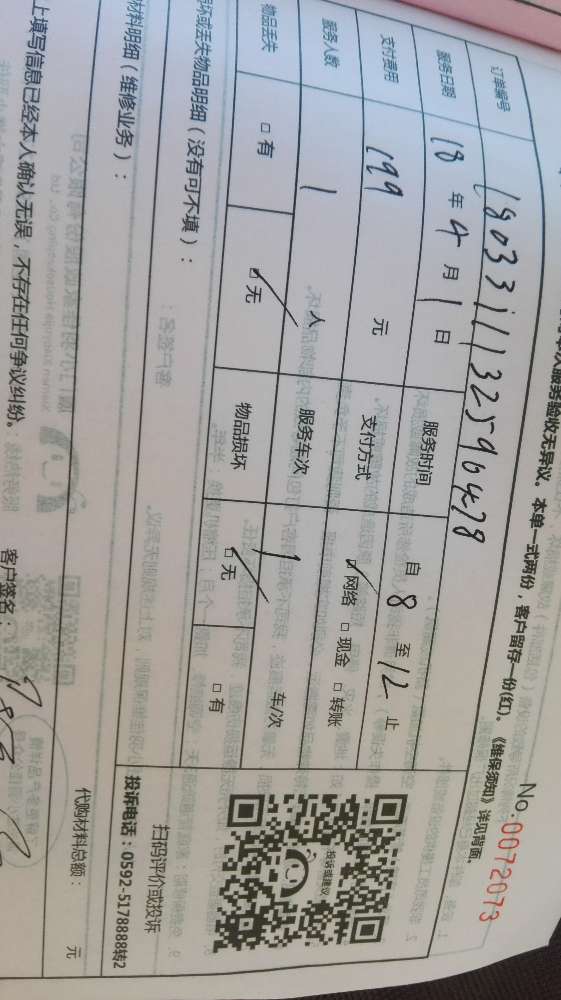 服务验收无异议。本单一式两份，客户留存一份(红)。《维保须知》详见背面。
No:0072073
订单编号 180331113259
服务日期 18 年 4 月 1 日 服务时间 自 8 至 12 止
支付费用 199 元 支付方式 网络 □ 现金 □ 转账
服务人数 1 人 服务车次 1 车/次
物品丢失 □ 有 □ 无 物品损坏 □ 无 □ 有
坏或丢失物品明细（没有可不填）：
材料明细（维修业务）：
投诉或建议
扫码评价或投诉
投诉电话：0592-5178888转2
代购材料总额： 元
上填写信息已经本人确认无误，不存在任何争议纠纷。
客户签名：